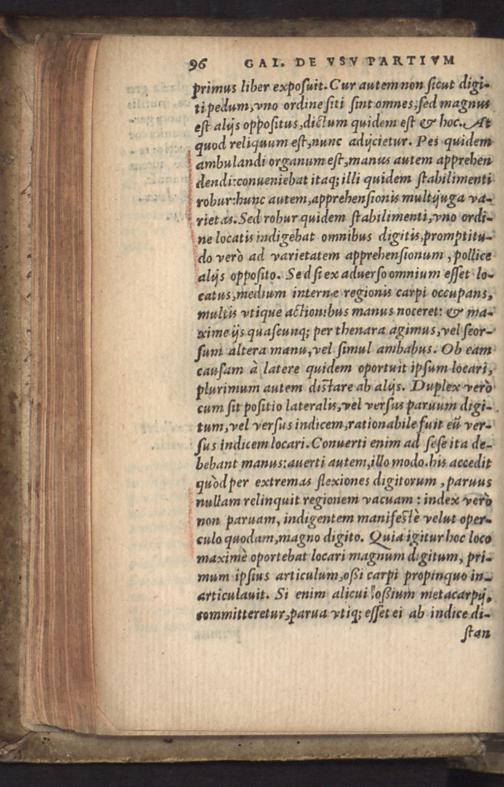 96 GAL. DE VSV PARTIVM
primus liber exposuit. Cur autem non sicut digi-
ti pedum, vno ordine siti sint omnes, sed magnus
est alijs oppositus, dictum quidem est & hoc. At
quod reliquum est, nunc adijcietur. Pes quidem
ambulandi organum est, manus autem apprehen
dendi: conueniebat itaq; illi quidem stabilimenti
robur: hunc autem, apprehensionis multijuga va-
rietas. Sed robur quidem stabilimenti, vno ordi-
ne locatis indigebat omnibus digitis, promptitu-
do verò ad varietatem apprehensionum, pollice
alijs opposito. Sed si ex aduerso omnium esset lo-
catus, medium internæ regionis carpi occupans,
multis vtique actionibus manus noceret: & ma-
xime ijs quascunq; per thenara agimus, vel seor-
sum altera manu, vel simul ambabus. Ob eam
causam à latere quidem oportuit ipsum locari,
plurimum autem distare ab alijs. Duplex verò
cum sit positio lateralis, vel versus paruum digi-
tum, vel versus indicem, rationabile fuit eū ver-
sus indicem locari. Conuerti enim ad sese ita de-
bebant manus: auerti autem, illo modo. his accedit
quòd per extremas flexiones digitorum, paruus
nullam relinquit regionem vacuam: index verò
non paruam, indigentem manifestè velut oper-
culo quodam, magno digito. Quia igitur hoc loco
maximè oportebat locari magnum digitum, pri-
mum ipsius articulum, ossi carpi propinquo in-
articulauit. Si enim alicui ossium metacarpij,
committeretur, parua vtiq; esset ei ab indice di-
stan